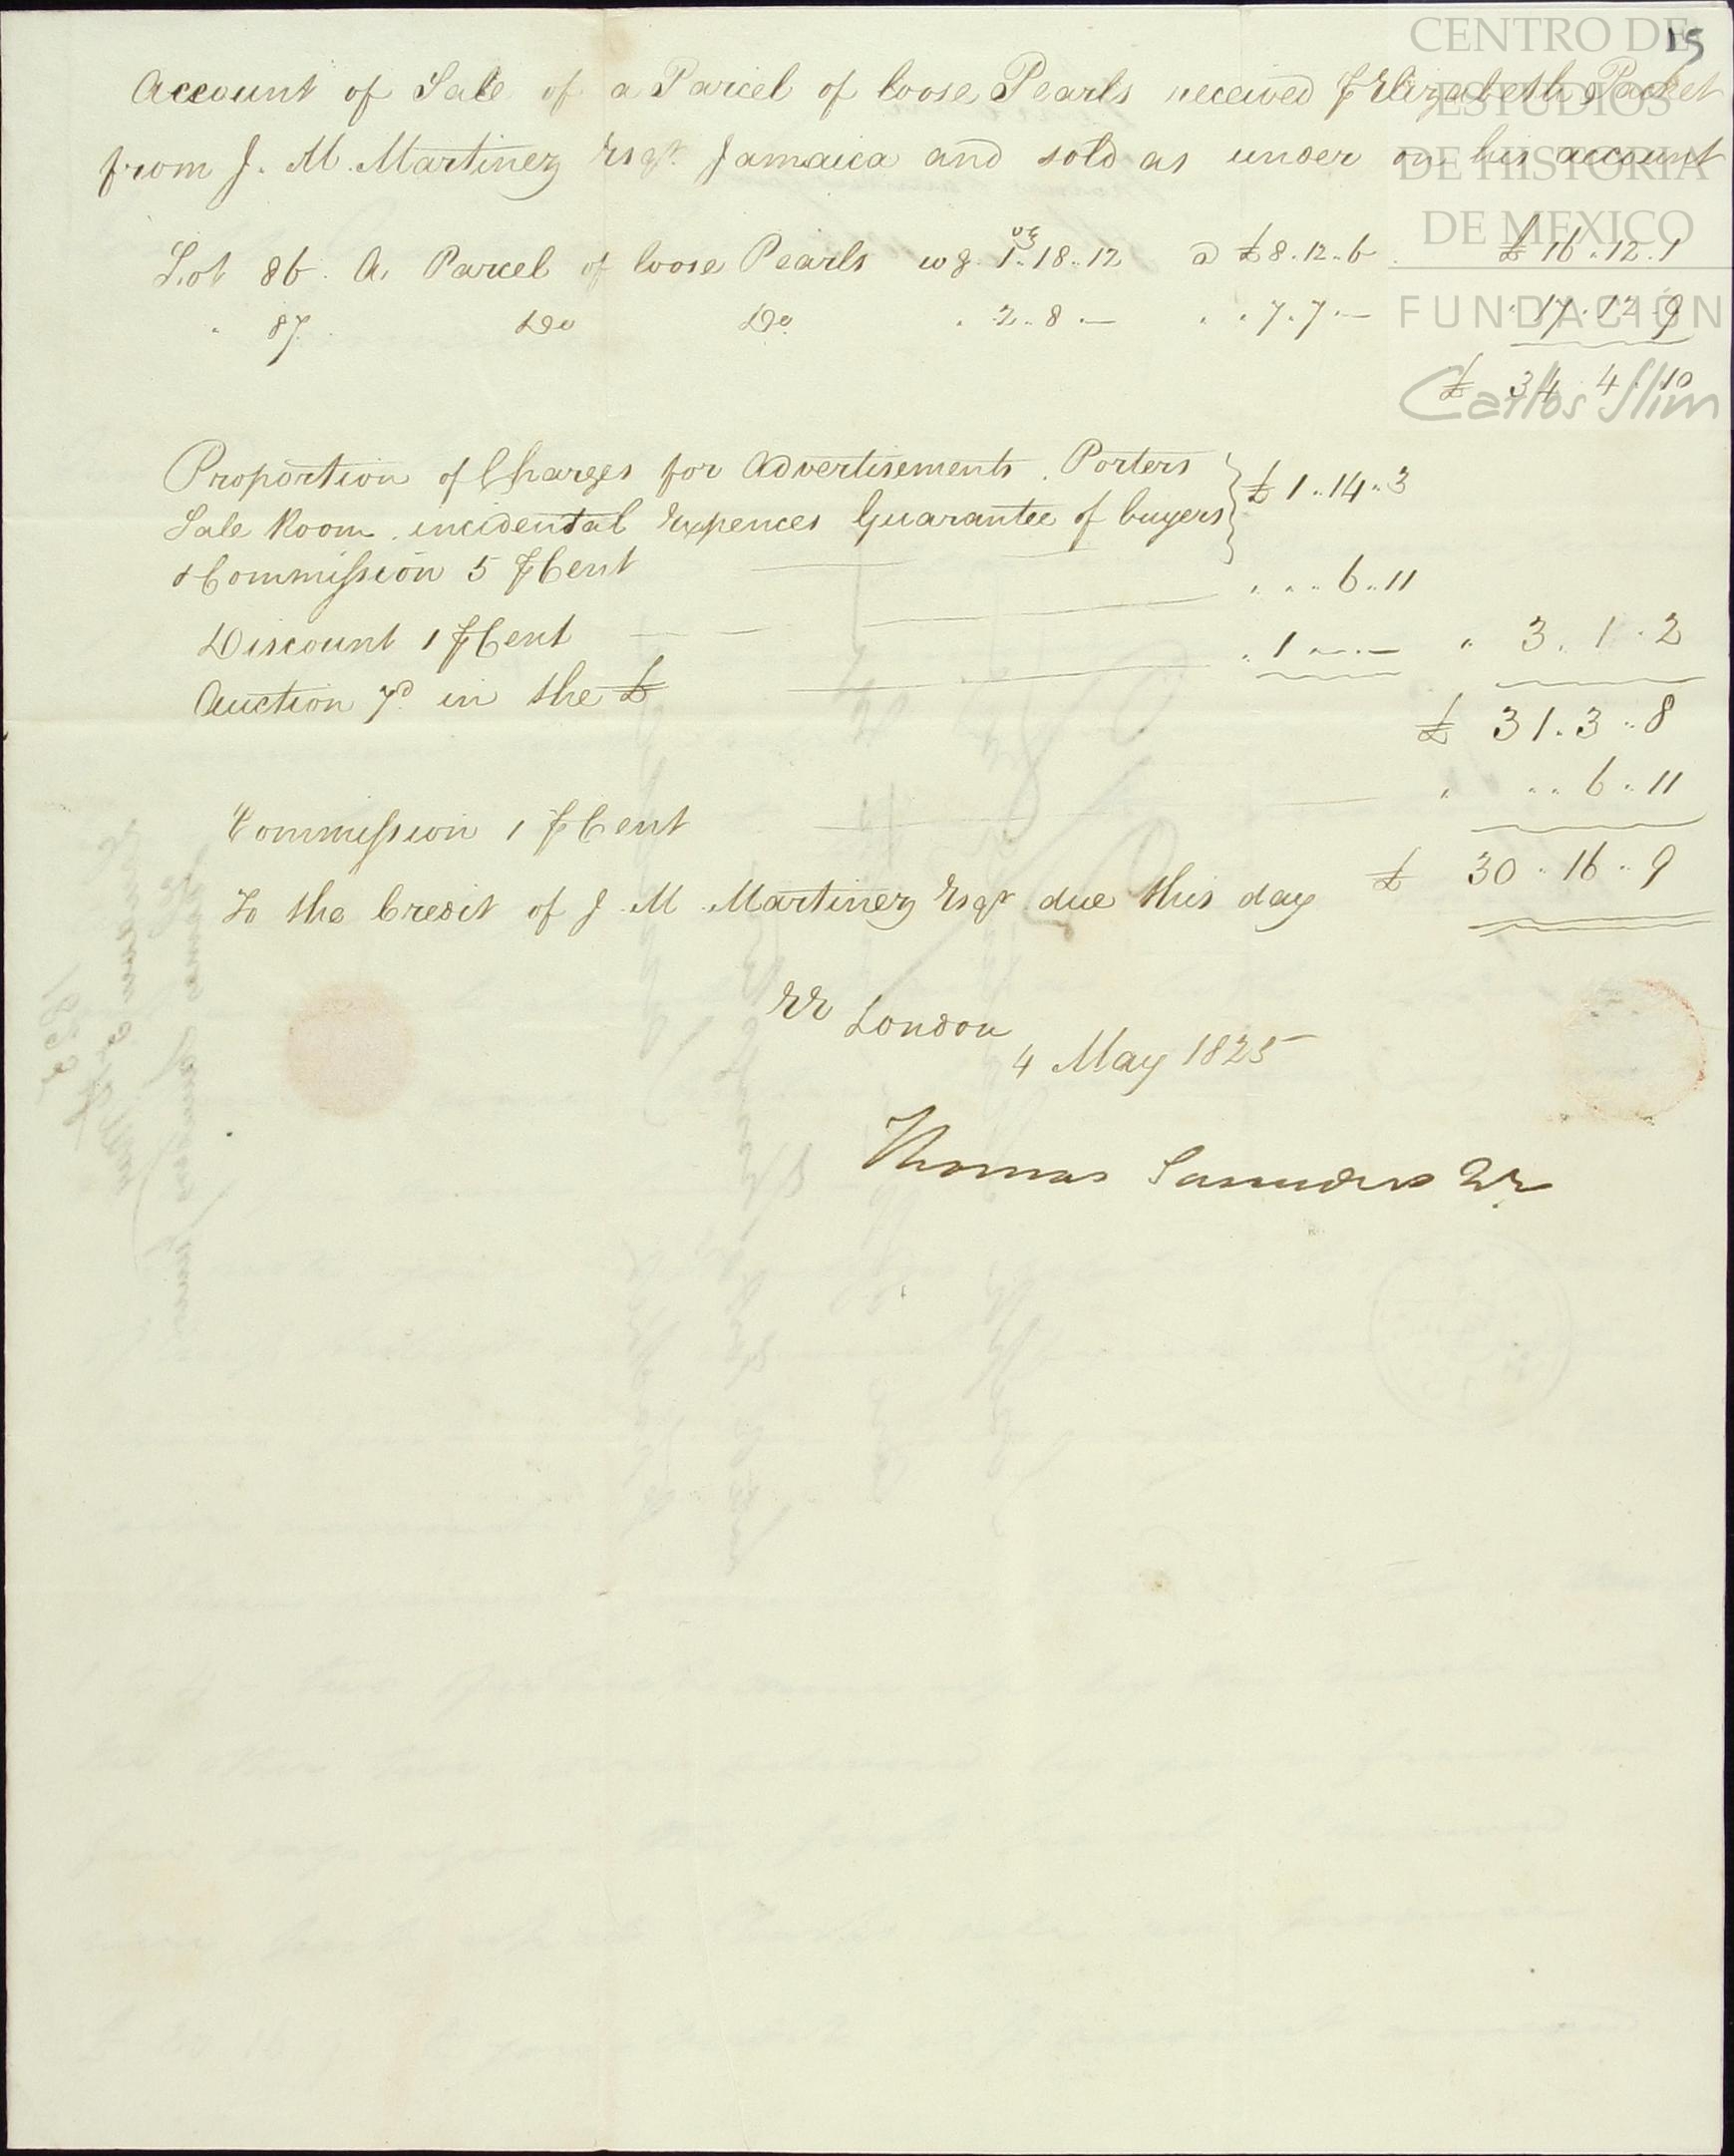 15
Account of Sale of a Parcel of loose Pearls received ⅌ Elizabeth Packet
from J. M. Martinez Esqr. Jamaica and sold as under on his account
Lot 86. A Parcel of loose Pearls wg. oz 1..18..12 @ £8..12..6 £16..12..1
" 87. Do Do. " 2..8..— " " 7..7..— " 17..12..9
£ 34..4..10
Proportion of Charges for Advertisements. Porters
Sale Room, incidental Expences Guarantee of buyers } £1..14..3
& Commission 5 ⅌ Cent
Discount 1 ⅌ Cent " " " 6..11
Auction 7d in the £ " 1..—..— " 3..1..2
£ 31..3..8
Commission 1 ⅌ Cent " " " 6..11
To the Credit of J. M. Martinez Esqr due this day £ 30..16..9
EE London
4 May 1825
Thomas Saunders Jr.
CENTRO DE
ESTUDIOS
DE HISTORIA
DE MEXICO
FUNDACIÓN
Carlos Slim